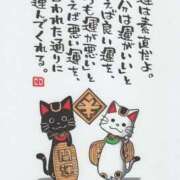 運は素直だよ。
分は運がいい」と
えば良い運を、
も運が悪い」と
えば悪い運を、
われた通りに
運んでくれる。